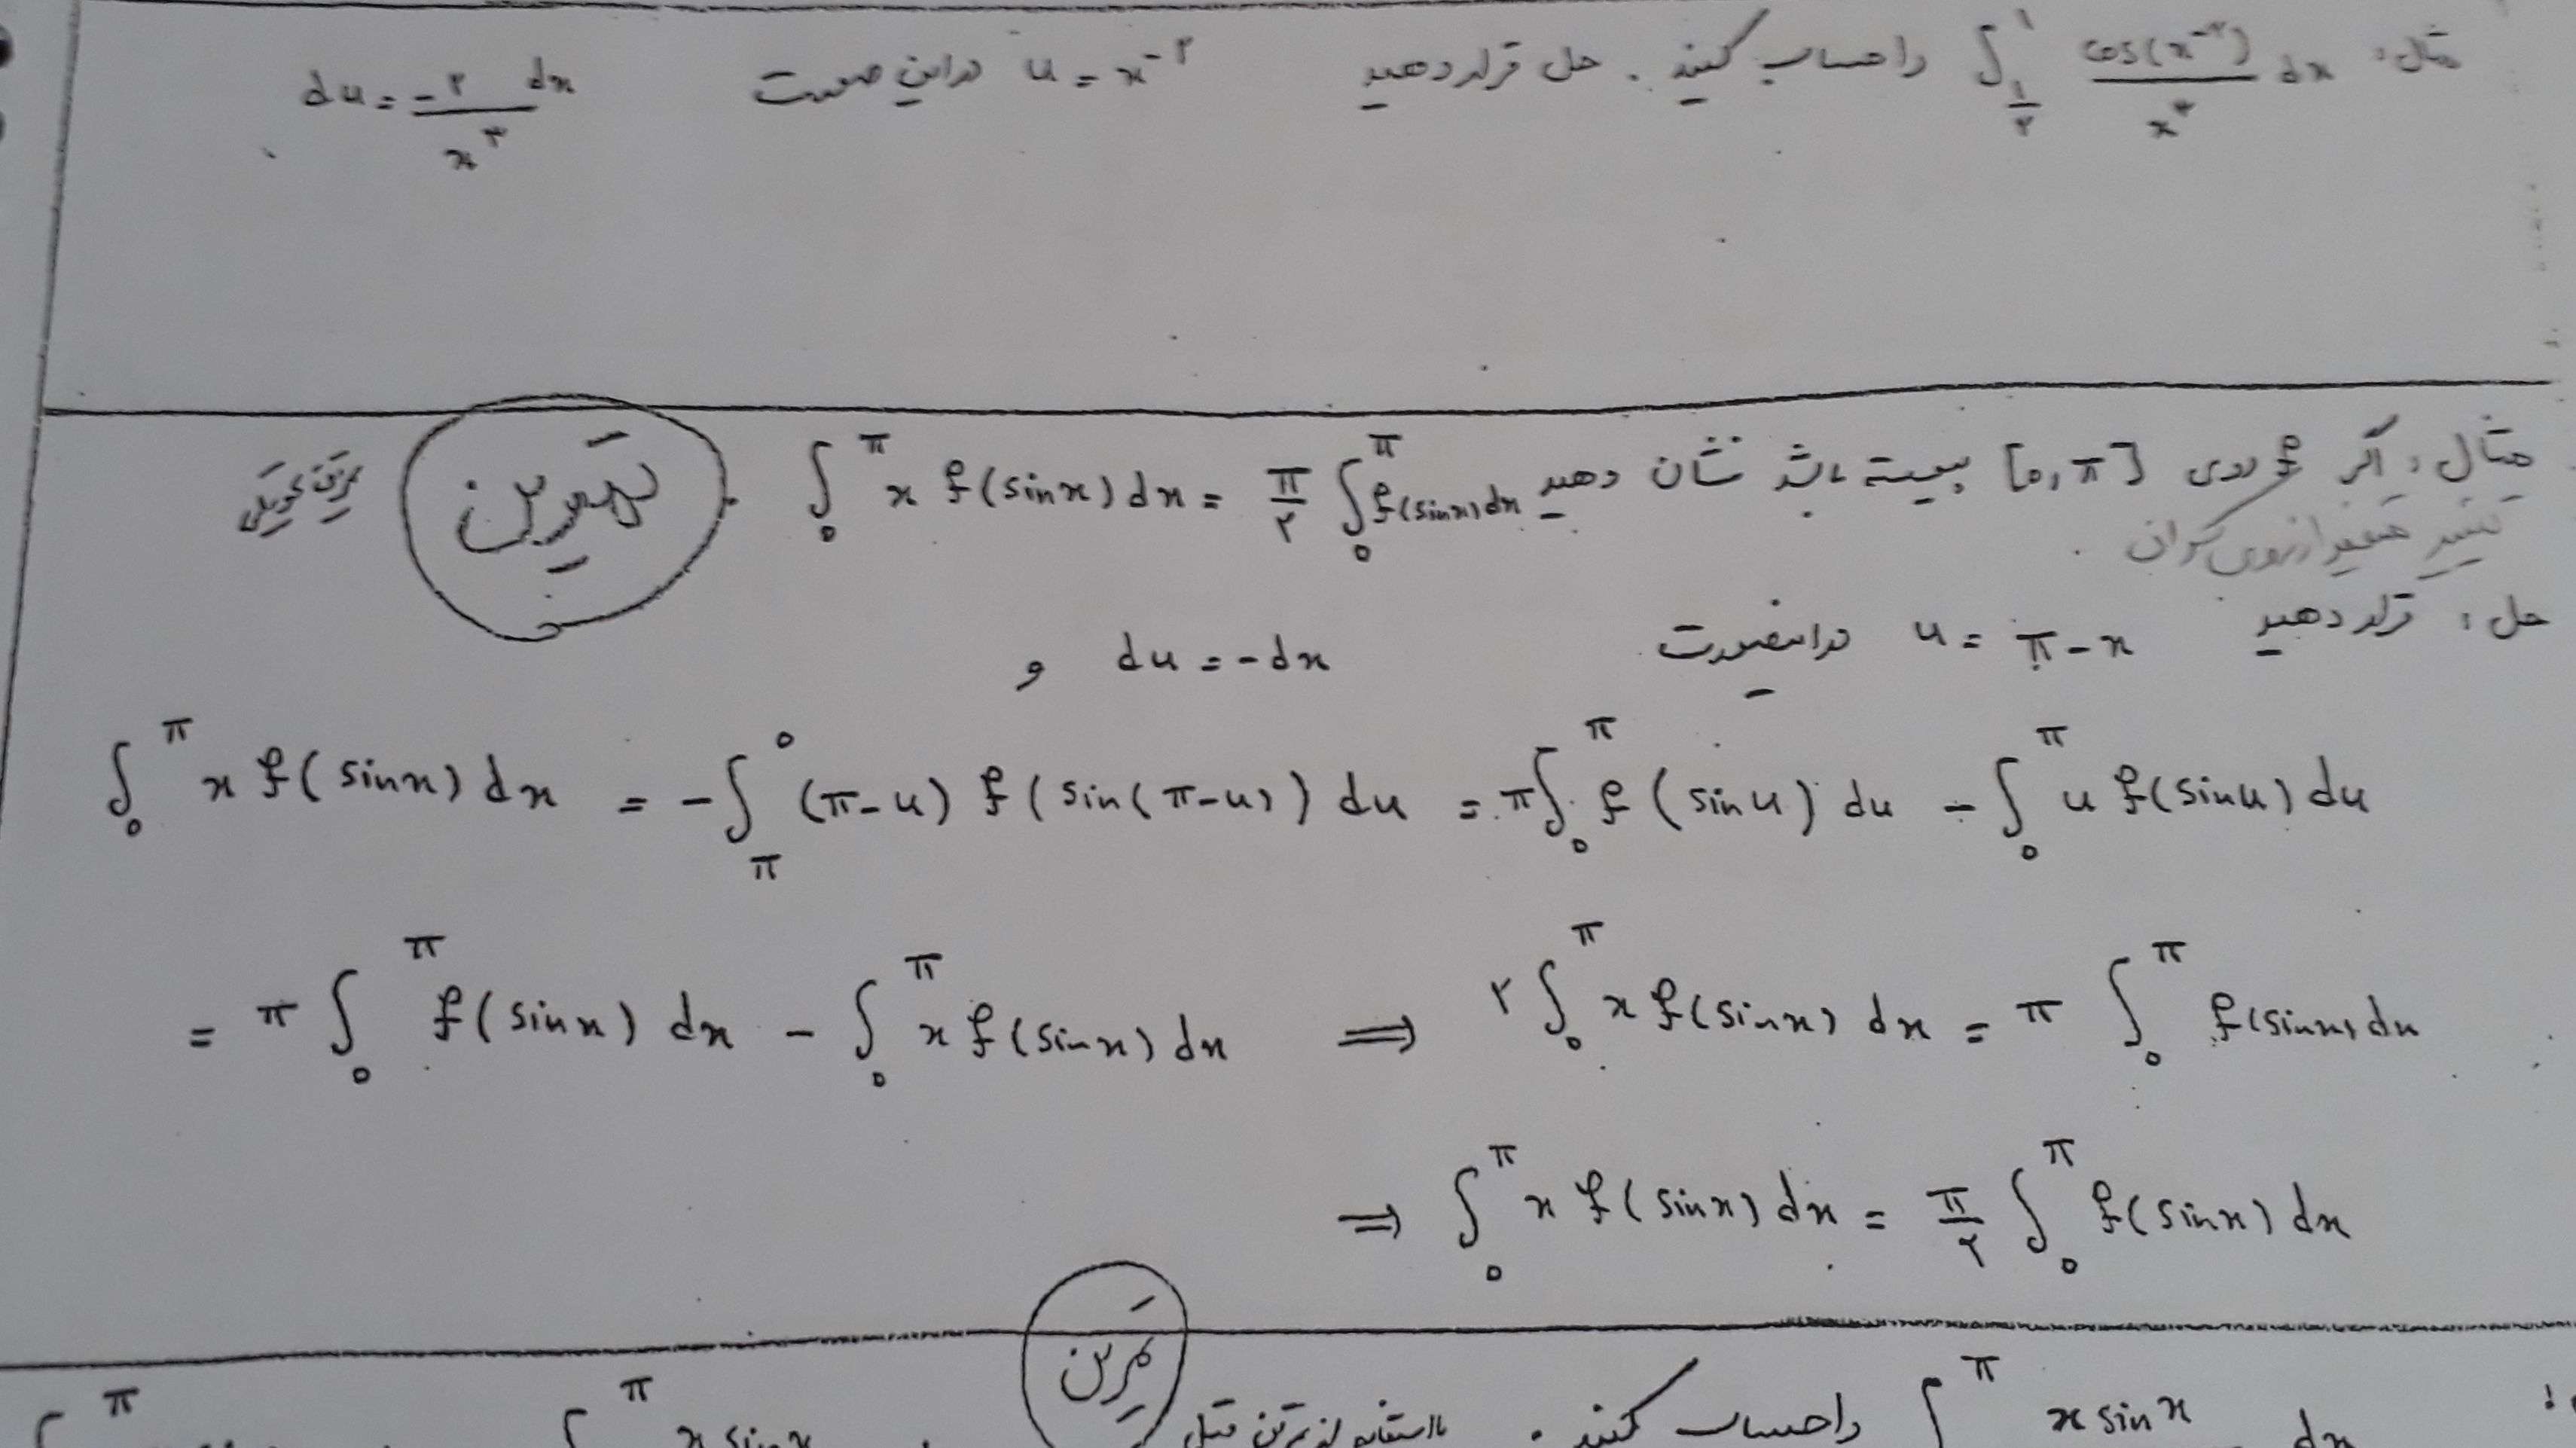 مثال: ∫_{۱/۲}^{۱} cos(x^{-۲})/x^۳ dx را حساب کنید. حل قرار دهید u = x^{-۲} در این صورت du = -۲ dx / x^۳
مثال: اگر f روی [۰,π] پیوسته باشد نشان دهید ∫_۰^π x f(sin x) dx = π/۲ ∫_۰^π f(sin x) dx . تمرین تمرین تحویلی
تغییر متغیر از روی کران.
حل: قرار دهید u = π - x در اینصورت du = -dx و
∫_۰^π x f(sin x) dx = -∫_π^۰ (π-u) f(sin(π-u)) du = π∫_۰^π f(sin u) du - ∫_۰^π u f(sin u) du
= π ∫_۰^π f(sin x) dx - ∫_۰^π x f(sin x) dx ⟹ ۲∫_۰^π x f(sin x) dx = π ∫_۰^π f(sin x) dx
⟹ ∫_۰^π x f(sin x) dx = π/۲ ∫_۰^π f(sin x) dx
تمرین
∫^π x sin x dx را حساب کنید. با استفاده از تمرین قبل ∫^π x sin x ∫^π